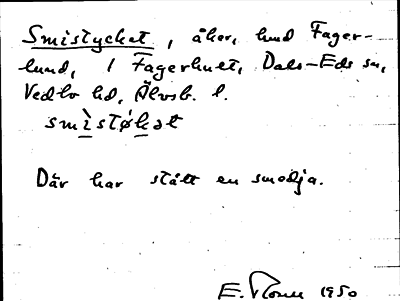 Smistycket, åker, hmd Fager-
lund, 1 Fagerhult, Dals-Eds sn,
Vedbo hd, Älvsb. l.
smìstø̀kət
Där har stått en smedja.
E. 1950